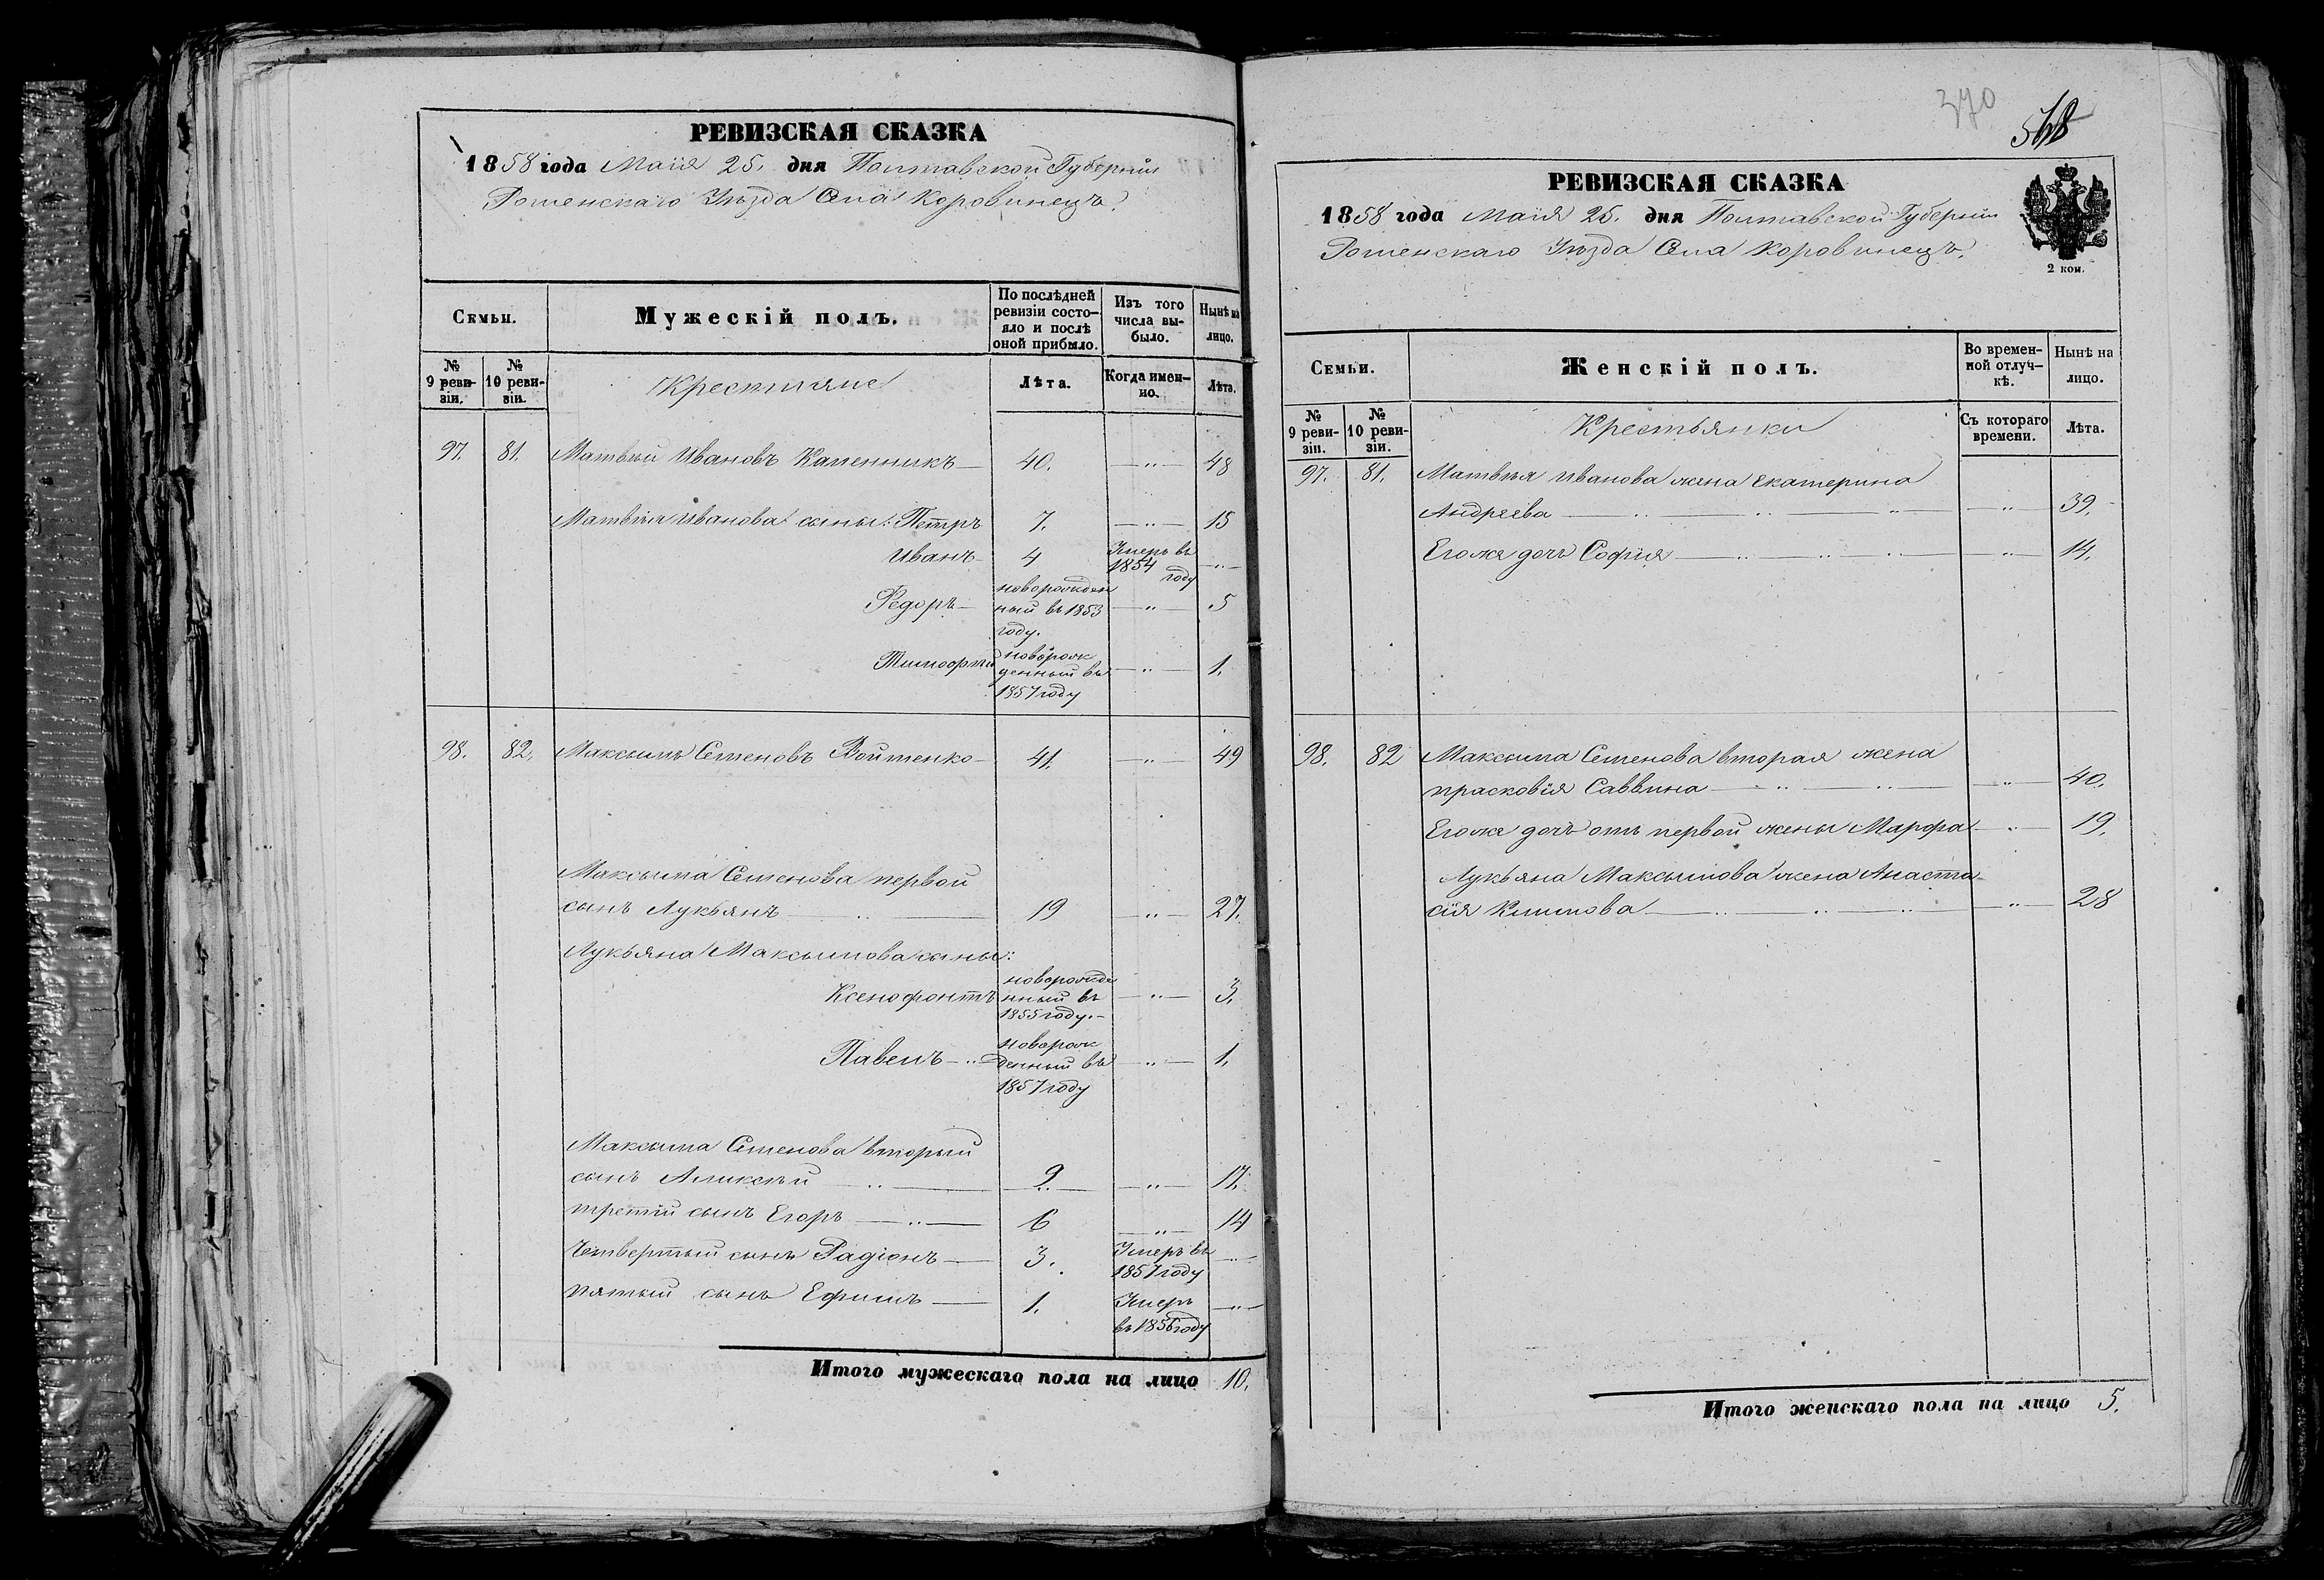 РЕВИЗСКАЯ СКАЗКА
1858 года Маія 25. дня Полтавской Губерніи
Роменскаго Уѣзда Села Коровинецъ.
Семьи.
Мужескій полъ.
По послѣдней ревизіи состояло и послѣ оной прибыло.
Изъ того числа выбыло.
Нынѣ на лицо.
№ 9 ревизіи.
№ 10 ревизіи.
Крестьяне
Лѣта.
Когда именно.
Лѣта.
97. 81. Матвѣй Ивановъ Каленникъ 40. — " — 48
Матвѣя Иванова сыны: Петръ 7. — " — 15
Иванъ 4 Умеръ въ 1854 году — " —
Федоръ новорожденный въ 1853 году. — " — 5
Тимофей новорожденный въ 1857 году — " — 1.
98. 82. Максымъ Семеновъ Войтенко 41. — " — 49
Максыма Семенова первой
сынъ Лукьянъ 19 — " — 27.
Лукьяна Максымова сыны:
Ксенофонтъ новорожденный въ 1855 году. — " — 3.
Павелъ новорожденный въ 1857 году — " — 1.
Максыма Семенова вторый
сынъ Аликсѣй 9 — " — 17.
третій сынъ Егоръ 6 — " — 14
Четвертый сынъ Радіонъ 3. Умеръ въ 1857 году — " —
пятый сынъ Ефимъ 1. Умеръ въ 1856 году — " —
Итого мужескаго пола на лицо 10.
370
568
РЕВИЗСКАЯ СКАЗКА
1858 года Маія 25. дня Полтавской Губерніи
Роменскаго Уѣзда Села Коровинецъ.
2 коп.
Семьи.
Женскій полъ.
Во временной отлучкѣ.
Нынѣ на лицо.
№ 9 ревизіи.
№ 10 ревизіи.
Крестьянки
Съ котораго времени.
Лѣта.
97. 81. Матвѣя Иванова жена Екатерина
Андреева — " — 39.
Егоже дочь Софія — " — 14.
98. 82 Максыма Семенова вторая жена
прасковія Саввина — " — 40.
Егоже дочь отъ первой жены Марфа — " — 19.
Лукьяна Максымова жена Анаста-
сія Климова — " — 28
Итого женскаго пола на лицо 5.